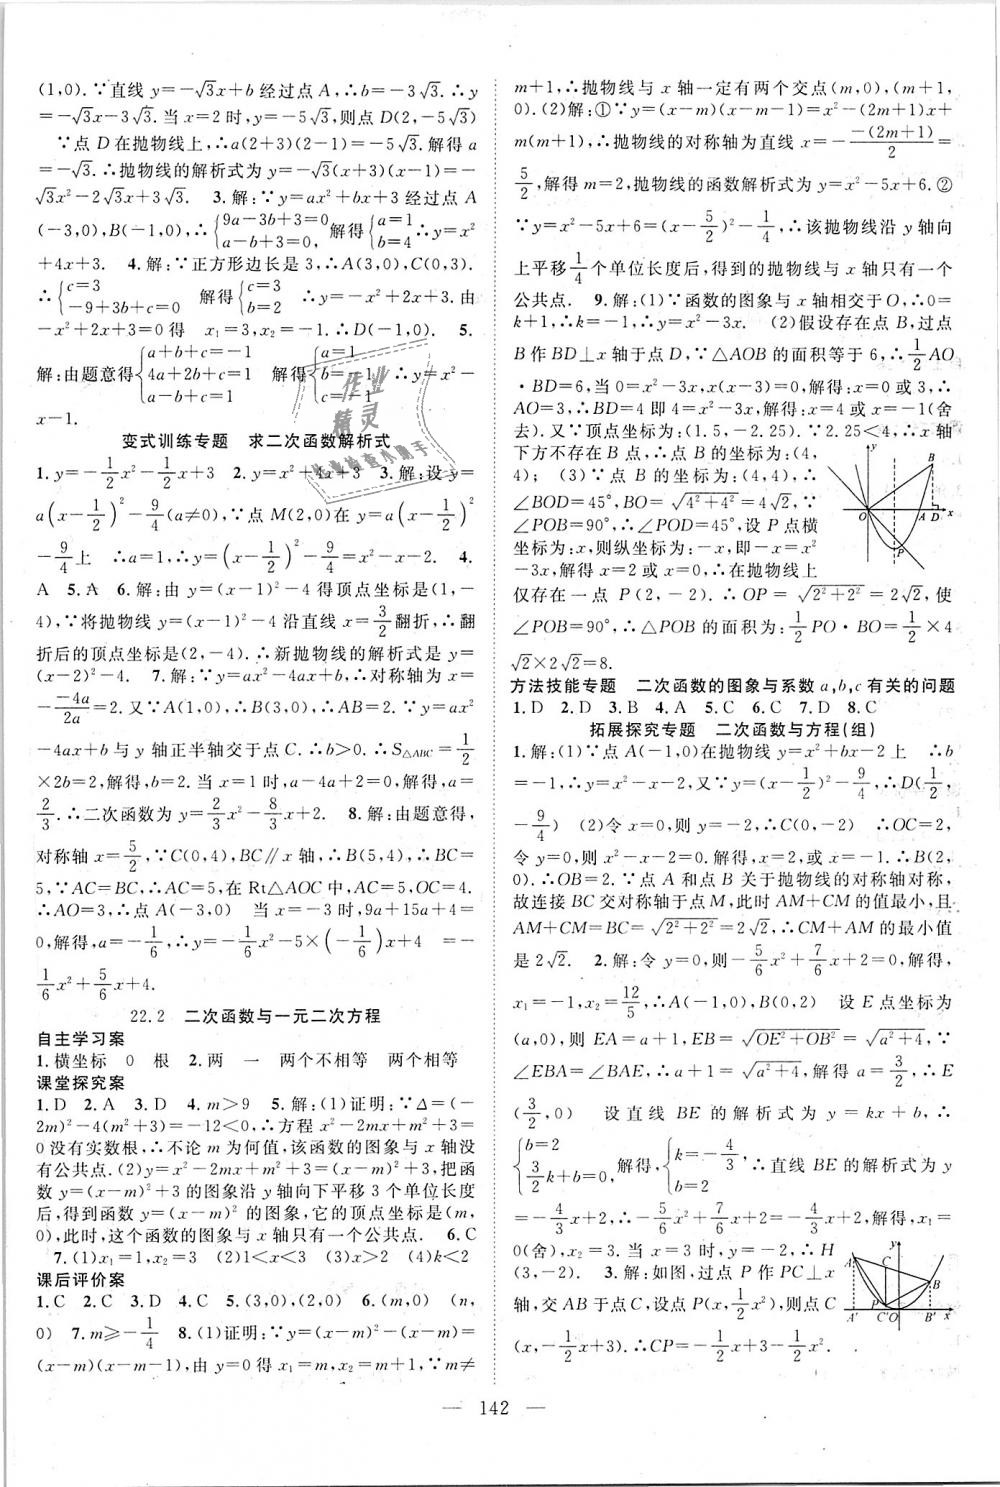 (1,0).∵直线 y=-√3x+b 经过点 A,∴b=-3√3.∴y
=-√3x-3√3.当 x=2 时,y=-5√3,则点 D(2,-5√3)
∵点 D 在抛物线上,∴a(2+3)(2-1)=-5√3.解得 a
=-√3.∴抛物线的解析式为 y=-√3(x+3)(x-1)=-
√3x²-2√3x+3√3. 3.解:∵y=ax²+bx+3 经过点 A
(-3,0),B(-1,0),∴{9a-3b+3=0 a-b+3=0 解得{a=1 b=4 ∴y=x²
+4x+3. 4.解:∵正方形边长是 3,∴A(3,0),C(0,3).
∴{c=3 -9+3b+c=0 解得{c=3 b=2 ∴y=-x²+2x+3.由
-x²+2x+3=0 得 x₁=3,x₂=-1.∴D(-1,0). 5.
解:由题意得{a+b+c=-1 4a+2b+c=1 c=-1 解得{a=1 b=-1 c=-1 ∴y=x²-
x-1.
变式训练专题 求二次函数解析式
1.y=-1/2x²-1/2x+3 2.y=x²+4x+3 3.解:设 y=
a(x-1/2)²-9/4(a≠0),∵点 M(2,0)在 y=a(x-1/2)²
-9/4上 ∴a=1,∴y=(x-1/2)²-9/4=x²-x-2. 4.
A 5.A 6.解:由 y=(x-1)²-4 得顶点坐标是(1,-
4),∵将抛物线 y=(x-1)²-4 沿直线 x=3/2翻折,∴翻
折后的顶点坐标是(2,-4).∴新抛物线的解析式是 y=
(x-2)²-4. 7.解:∵y=ax²-4ax+b,∴对称轴为 x=
--4a/2a=2.又∵A(1,0),∴B(3,0),∴AB=2,∵y=ax²
-4ax+b 与 y 轴正半轴交于点 C.∴b>0.∴S△ABC=1/2
×2b=2,解得,b=2.当 x=1 时,a-4a+2=0,解得,a=
2/3.∴二次函数为 y=2/3x²-8/3x+2. 8.解:由题意得,
对称轴 x=5/2,∵C(0,4),BC∥x 轴,∴B(5,4),∴BC=
5,∵AC=BC,∴AC=5,在 Rt△AOC 中,AC=5,OC=4.
∴AO=3,∴点 A(-3,0) 当 x=-3 时,9a+15a+4=
0,解得,a=-1/6,∴y=-1/6x²-5×(-1/6)x+4 =-
1/6x²+5/6x+4.
22.2 二次函数与一元二次方程
自主学习案
1.横坐标 0 根 2.两 一 两个不相等 两个相等
课堂探究案
1.D 2.A 3.D 4.m>9 5.解:(1)证明:∵Δ=(-
2m)²-4(m²+3)=-12<0,∴方程 x²-2mx+m²+3=
0 没有实数根,∴不论 m 为何值,该函数的图象与 x 轴没
有公共点.(2)y=x²-2mx+m²+3=(x-m)²+3,把函
数 y=(x-m)²+3 的图象沿 y 轴向下平移 3 个单位长度
后,得到函数 y=(x-m)² 的图象,它的顶点坐标是(m,
0),此时,这个函数的图象与 x 轴只有一个公共点. 6.C
7.(1)x₁=1,x₂=3 (2)1<x<3 (3)x>2 (4)k<2
课后评价案
1.C 2.C 3.D 4.C 5.(3,0),(2,0) 6.(m,0) (n,
0) 7.m≥-1/4 8.(1)证明:∵y=(x-m)²-(x-m)=
(x-m)(x-m-1),由 y=0 得 x₁=m,x₂=m+1,∵m≠
m+1,∴抛物线与 x 轴一定有两个交点(m,0),(m+1,
0).(2)解:①∵y=(x-m)(x-m-1)=x²-(2m+1)x+
m(m+1),∴抛物线的对称轴为直线 x=--(2m+1)/2=
5/2,解得 m=2,抛物线的函数解析式为 y=x²-5x+6.②
∵y=x²-5x+6=(x-5/2)²-1/4,∴该抛物线沿 y 轴向
上平移1/4个单位长度后,得到的抛物线与 x 轴只有一个
公共点. 9.解:(1)∵函数的图象与 x 轴相交于 O,∴0=
k+1,∴k=-1,∴y=x²-3x. (2)假设存在点 B,过点
B 作 BD⊥x 轴于点 D,∵△AOB 的面积等于 6,∴1/2AO
·BD=6,当 0=x²-3x,x(x-3)=0,解得:x=0 或 3,∴
AO=3,∴BD=4 即 4=x²-3x,解得:x=4 或 x=-1(舍
去).又∵顶点坐标为:(1.5,-2.25).∵2.25<4,∴x 轴
下方不存在 B 点,∴点 B 的坐标为:(4,
4); (3)∵点 B 的坐标为:(4,4),∴
∠BOD=45°,BO=√4²+4²=4√2,∵
∠POB=90°,∴∠POD=45°,设 P 点横
坐标为:x,则纵坐标为:-x,即-x=x²
-3x,解得 x=2 或 x=0,∴在抛物线上
仅存在一点 P(2,-2).∴OP=√2²+2²=2√2,使
∠POB=90°,∴△POB 的面积为:1/2PO·BO=1/2×4
√2×2√2=8.
方法技能专题 二次函数的图象与系数 a,b,c 有关的问题
1.D 2.D 3.B 4.A 5.C 6.C 7.D 8.C
拓展探究专题 二次函数与方程(组)
1.解:(1)∵点 A(-1,0)在抛物线 y=x²+bx-2 上 ∴b
=-1,∴y=x²-x-2,又∵y=(x-1/2)²-9/4,∴D(1/2,
-9/4) (2)令 x=0,则 y=-2,∴C(0,-2) ∴OC=2,
令 y=0,则 x²-x-2=0.解得,x=2 或 x=-1.∴B(2,
0).∴OB=2.∵点 A 和点 B 关于抛物线的对称轴对称,
故连接 BC 交对称轴于点 M,此时 AM+CM 的值最小,且
AM+CM=BC=√2²+2²=2√2,∴CM+AM 的最小值
是 2√2. 2.解:令 y=0,则-5/6x²+7/6x+2=0,解得,
x₁=-1,x₂=12/5,∴A(-1,0),B(0,2) 设 E 点坐标为
(a,0),则 EA=a+1,EB=√OE²+OB²=√a²+4,∵
∠EBA=∠BAE,∴a+1=√a²+4,∴a=3/2,∴E
(3/2,0) 设直线 BE 的解析式为 y=kx+b,∴
{b=2 3/2k+b=0,解得,{k=-4/3 b=2,∴直线 BE 的解析式为 y
=-4/3x+2,∴-5/6x²+7/6x+2=-4/3x+2,解得,x₁=
0(舍),x₂=3.当 x=3 时,y=-2,∴H
(3,-2). 3.解:如图,过点 P 作 PC⊥x
轴,交 AB 于点 C,设点 P(x,1/2x²),则点 C
(x,-1/2x+3).∴CP=-1/2x+3-1/2x².
142